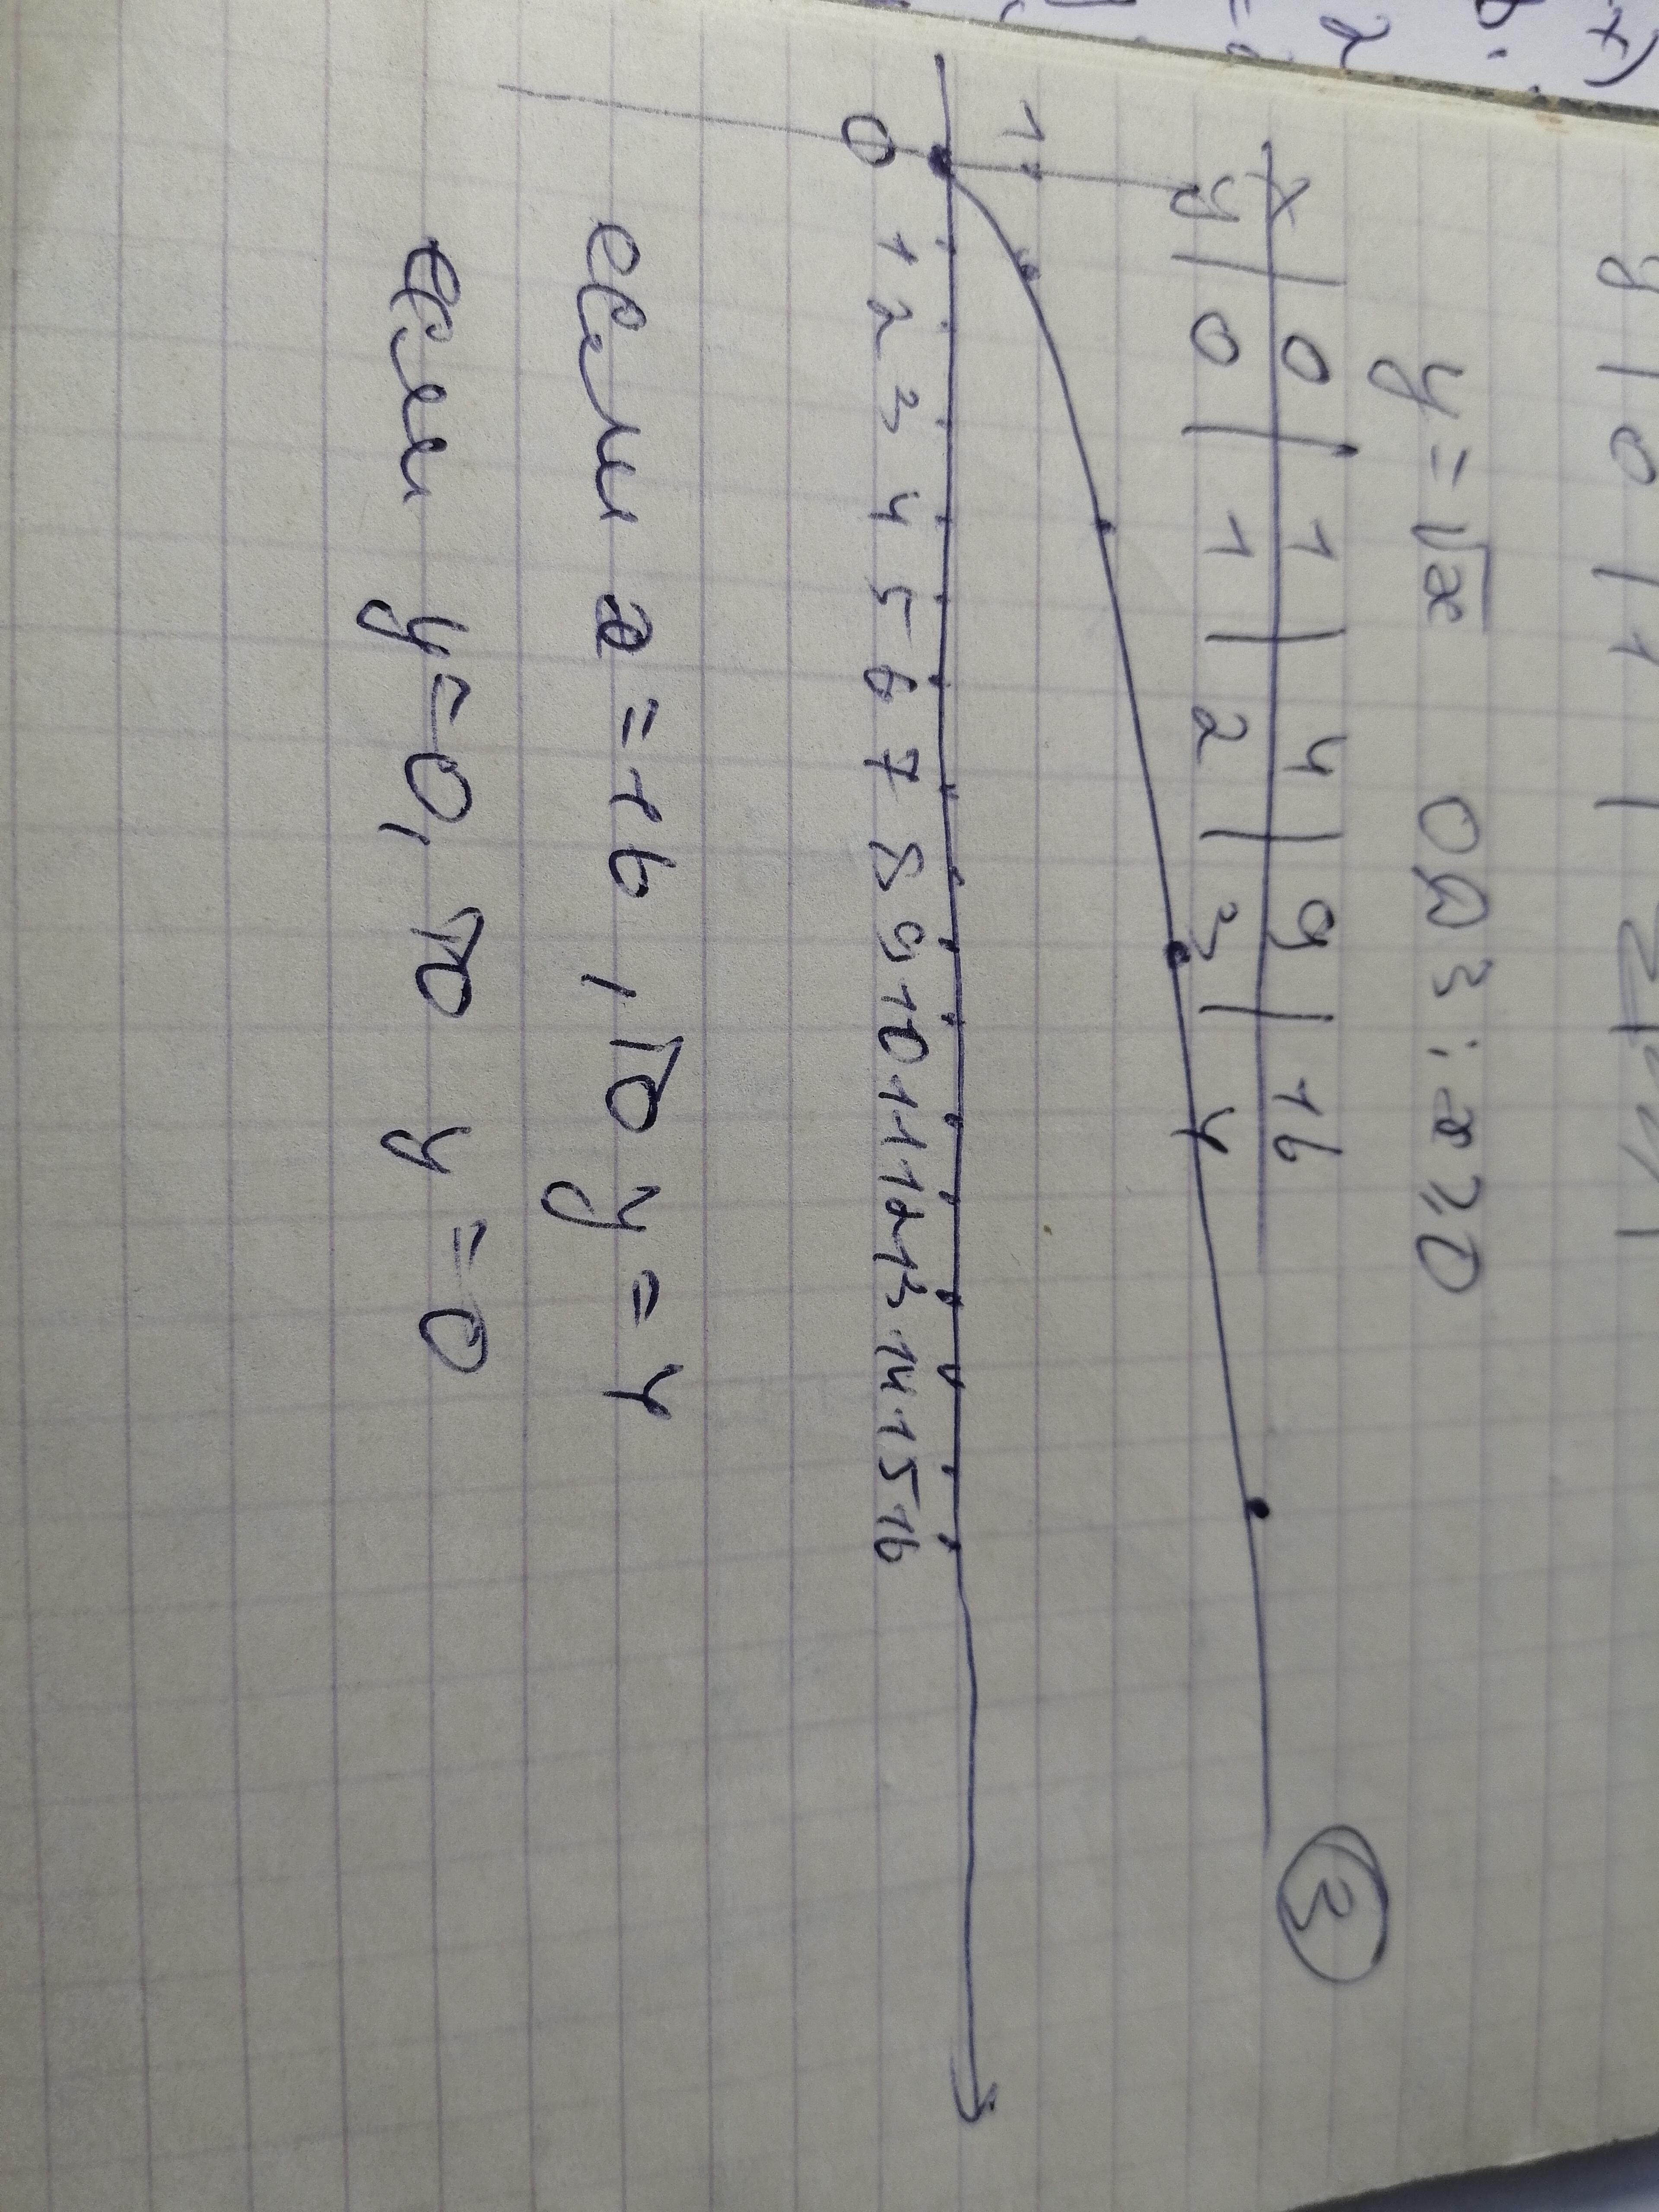 y = √x ОДЗ: x ≥ 0
x | 0 | 1 | 4 | 9 | 16
y | 0 | 1 | 2 | 3 | 4
③
1
0 1 2 3 4 5 6 7 8 9 10 11 12 13 14 15 16
если x = 16, то y = 4
если y = 0, то y = 0